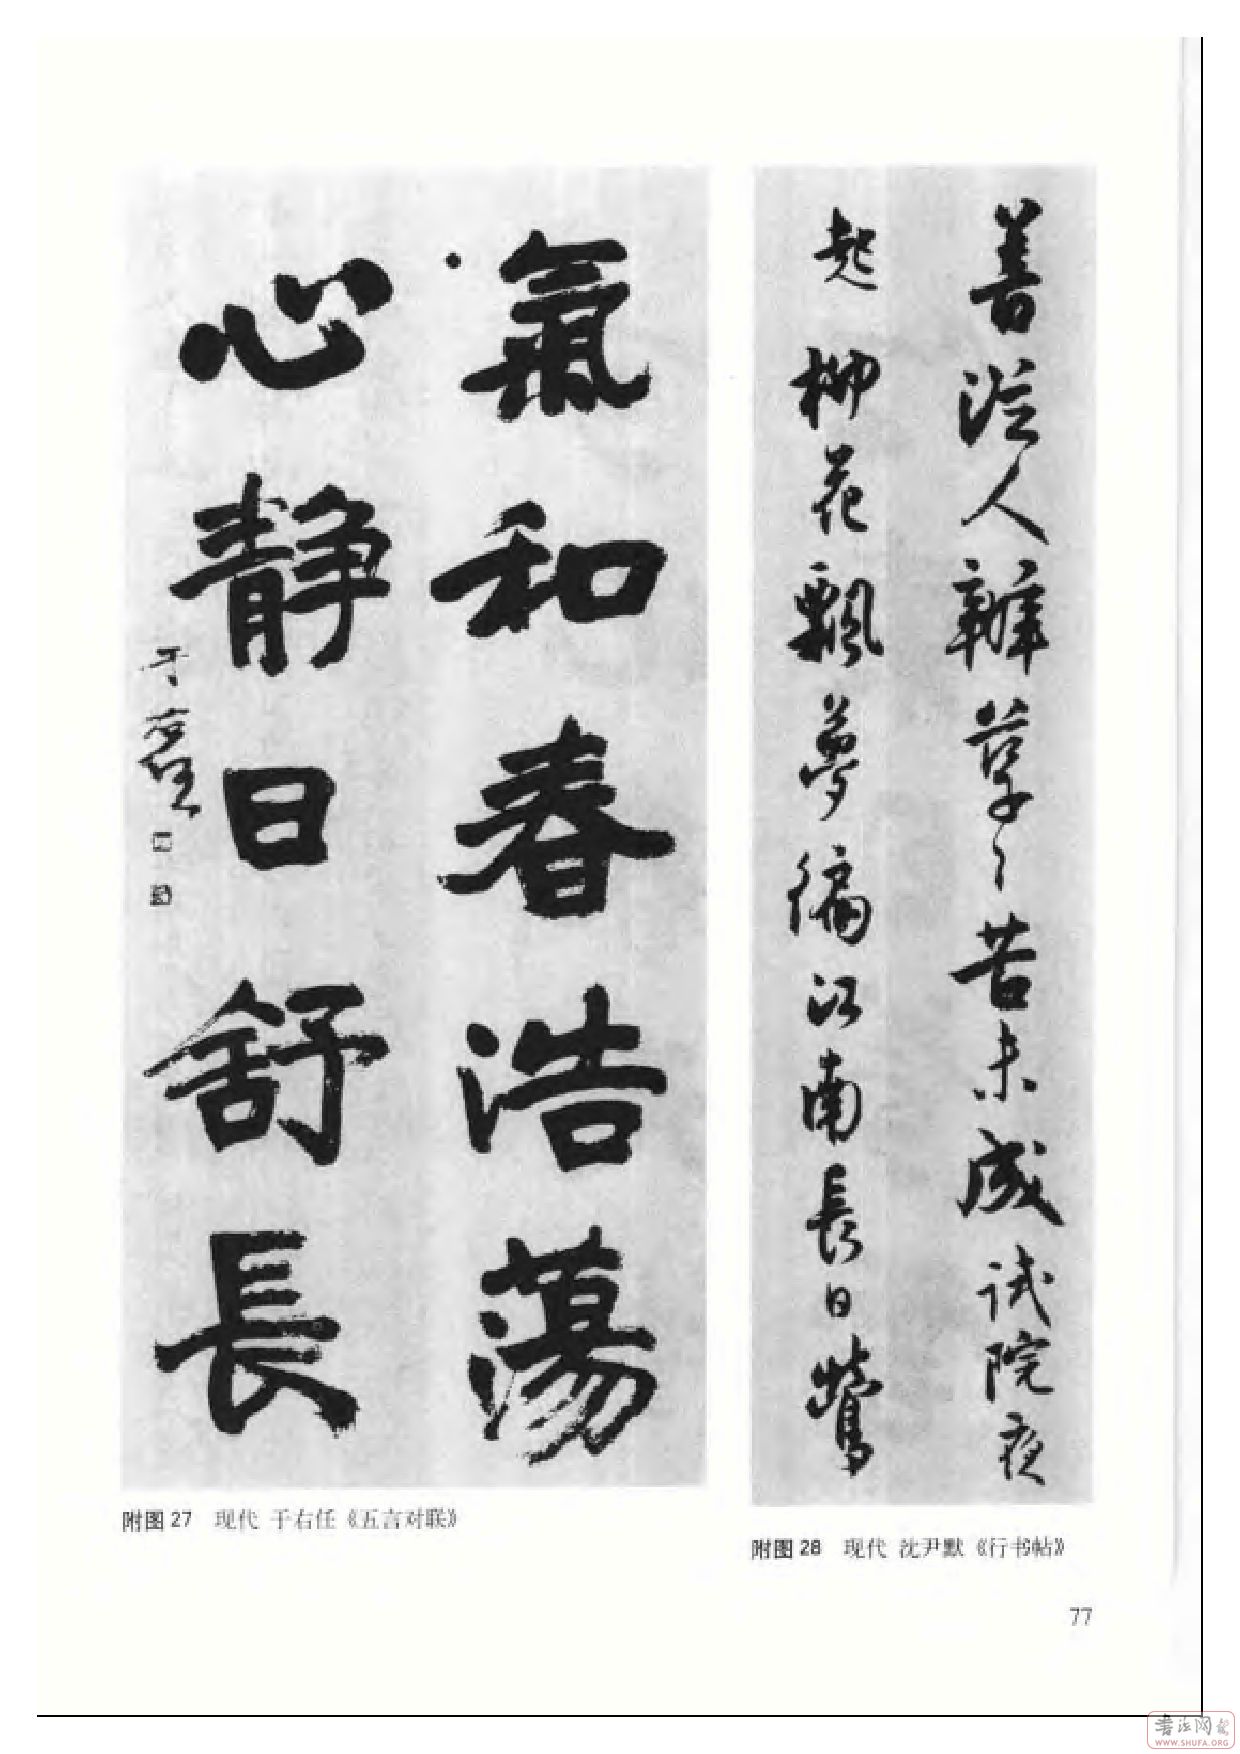 氣和春浩蕩
心静日舒長
于右任
善人辦苦未成試院夜
起柳花飄夢徧江南長日鶯
附图27 现代 于右任《五言对联》
附图28 现代 沈尹默《行书帖》
77
书法网
WWW.SHUFA.ORG